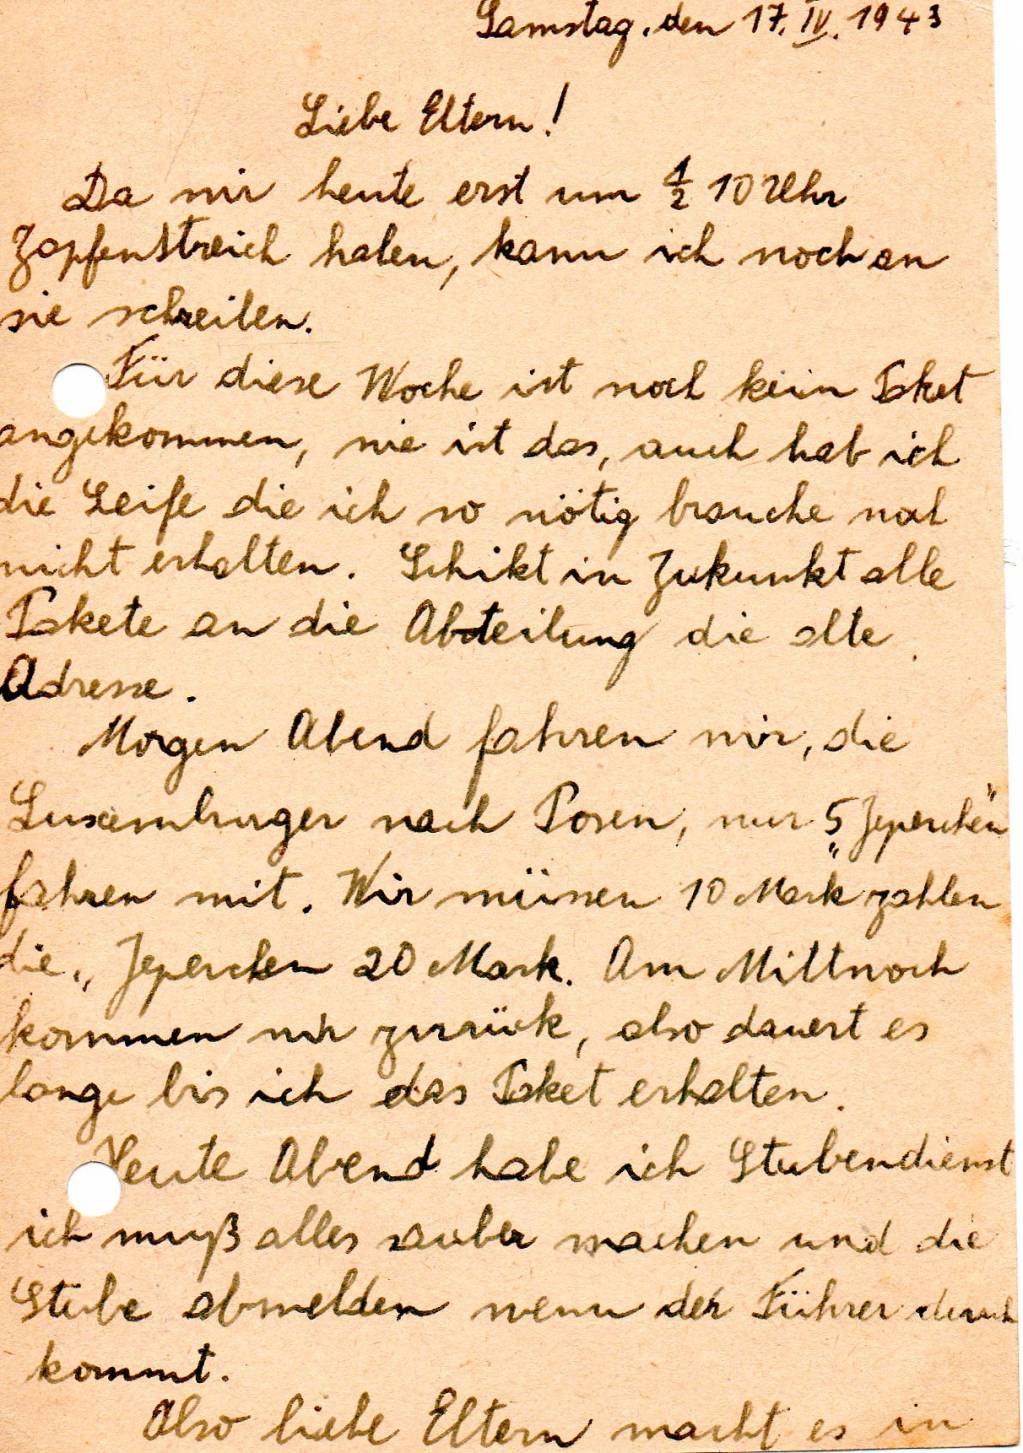 Samstag, den 17. IV. 1943
Liebe Eltern!
Da wir heute erst um ½ 10 Uhr
Zapfenstreich haben, kann ich noch an
sie schreiben.
Für diese Woche ist noch kein Paket
angekommen, wie ist das, auch hab ich
die Seife die ich so nötig brauche noch
nicht erhalten. Schikt in Zukunkt alle
Pakete an die Abteilung die alte
Adresse.
Morgen Abend fahren wir, die
Luxemburger nach Posen, nur 5 „Jeperchen"
fahren mit. Wir müssen 10 Mark zahlen
die „Jeperchen 20 Mark. Am Mittwoch
kommen wir zurück, also dauert es
lange bis ich das Paket erhalten.
Heute Abend habe ich Stubendienst
ich muß alles sauber machen und die
Stube abmelden wenn der Führer durch
kommt.
Also liebe Eltern macht es in